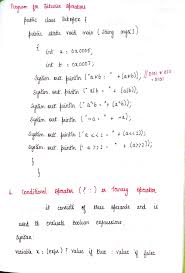 Program for Bitwise Operators
public class InfoTex {
public static void main (String args[])
{
int a : 0x0005;
int b : 0x0007;
System.out.println ("a&b : " + (a&b));
System.out.println ("a|b : " + (a|b));
System.out.println ("a^b = " + (a^b));
System.out.println ("~a = " + ~a);
System.out.println ("a<<2 = " + (a<<2));
System.out.println ("a>>2 = " + (a>>2));
}
}
Conditional Operator (?:) or Ternary Operator
it consists of three operands and is
used to evaluate boolean expressions
Syntax
variable x : (expn) ? value if true : value if false